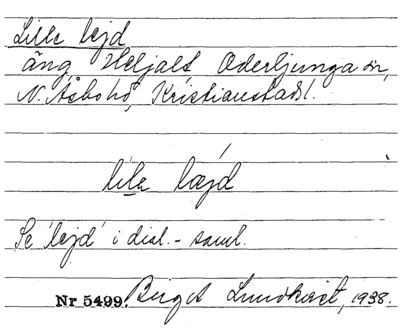 Lille lejd
äng, Heljalt, Oderljunga sn,
N. Åsbo hd, Kristianstads l.
lila læjd
Se 'lejd' i dial.-saml.
Nr 5499. Birgit Lundkvist, 1938.